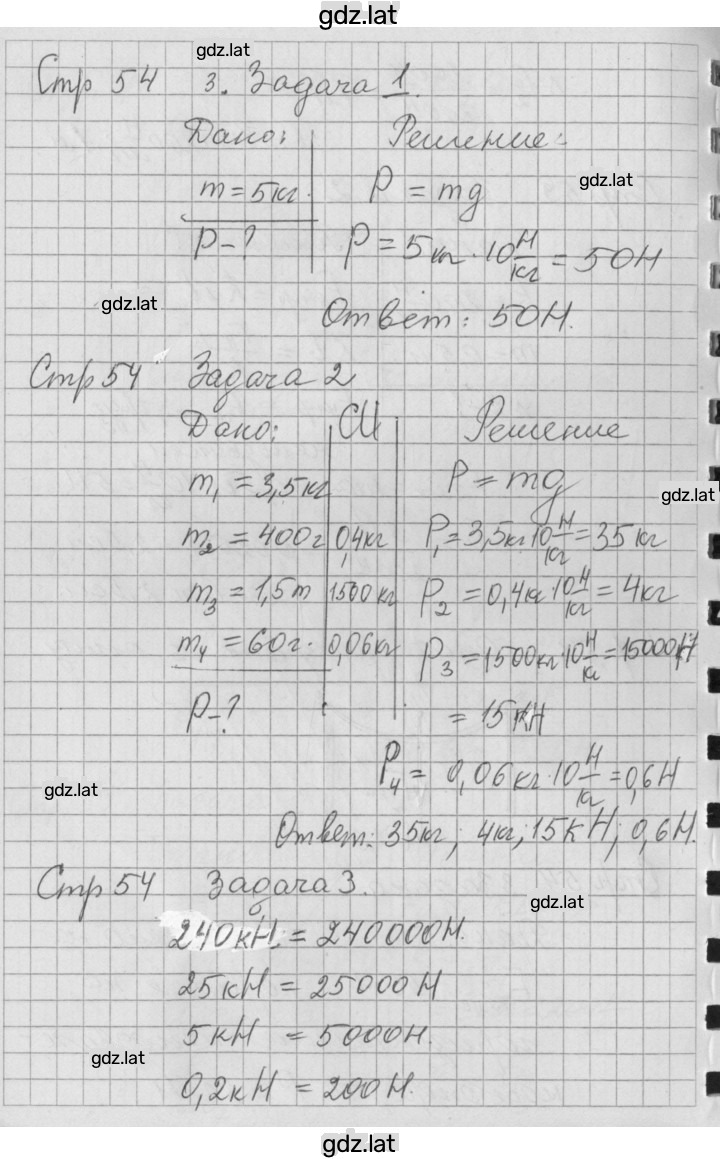 gdz.lat
gdz.lat
Стр 54 3. Задача 1.
Дано: Решение:
gdz.lat
m = 5кг. P = mg
P - ? P = 5кг · 10 Н/кг = 50Н
gdz.lat
Ответ: 50Н.
Стр 54 Задача 2
Дано: СИ Решение
m₁ = 3,5кг P = mg
gdz.lat
m₂ = 400г 0,4кг P₁ = 3,5кг · 10 Н/кг = 35 кг
m₃ = 1,5т 1500 кг P₂ = 0,4кг · 10 Н/кг = 4кг
m₄ = 60г. 0,06кг P₃ = 1500кг · 10 Н/кг = 15000Н
P - ? = 15кН
P₄ = 0,06кг · 10 Н/кг = 0,6Н
gdz.lat
Ответ: 35кг; 4кг; 15кН; 0,6Н.
Стр 54 Задача 3.
gdz.lat
240кН = 240000Н.
25кН = 25000Н
5кН = 5000Н.
gdz.lat
0,2кН = 200Н.
gdz.lat